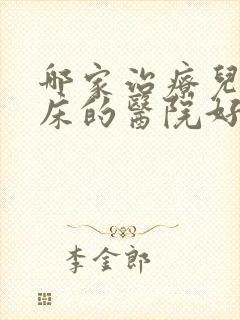 哪家治療兒
床的醫院好
李金郎